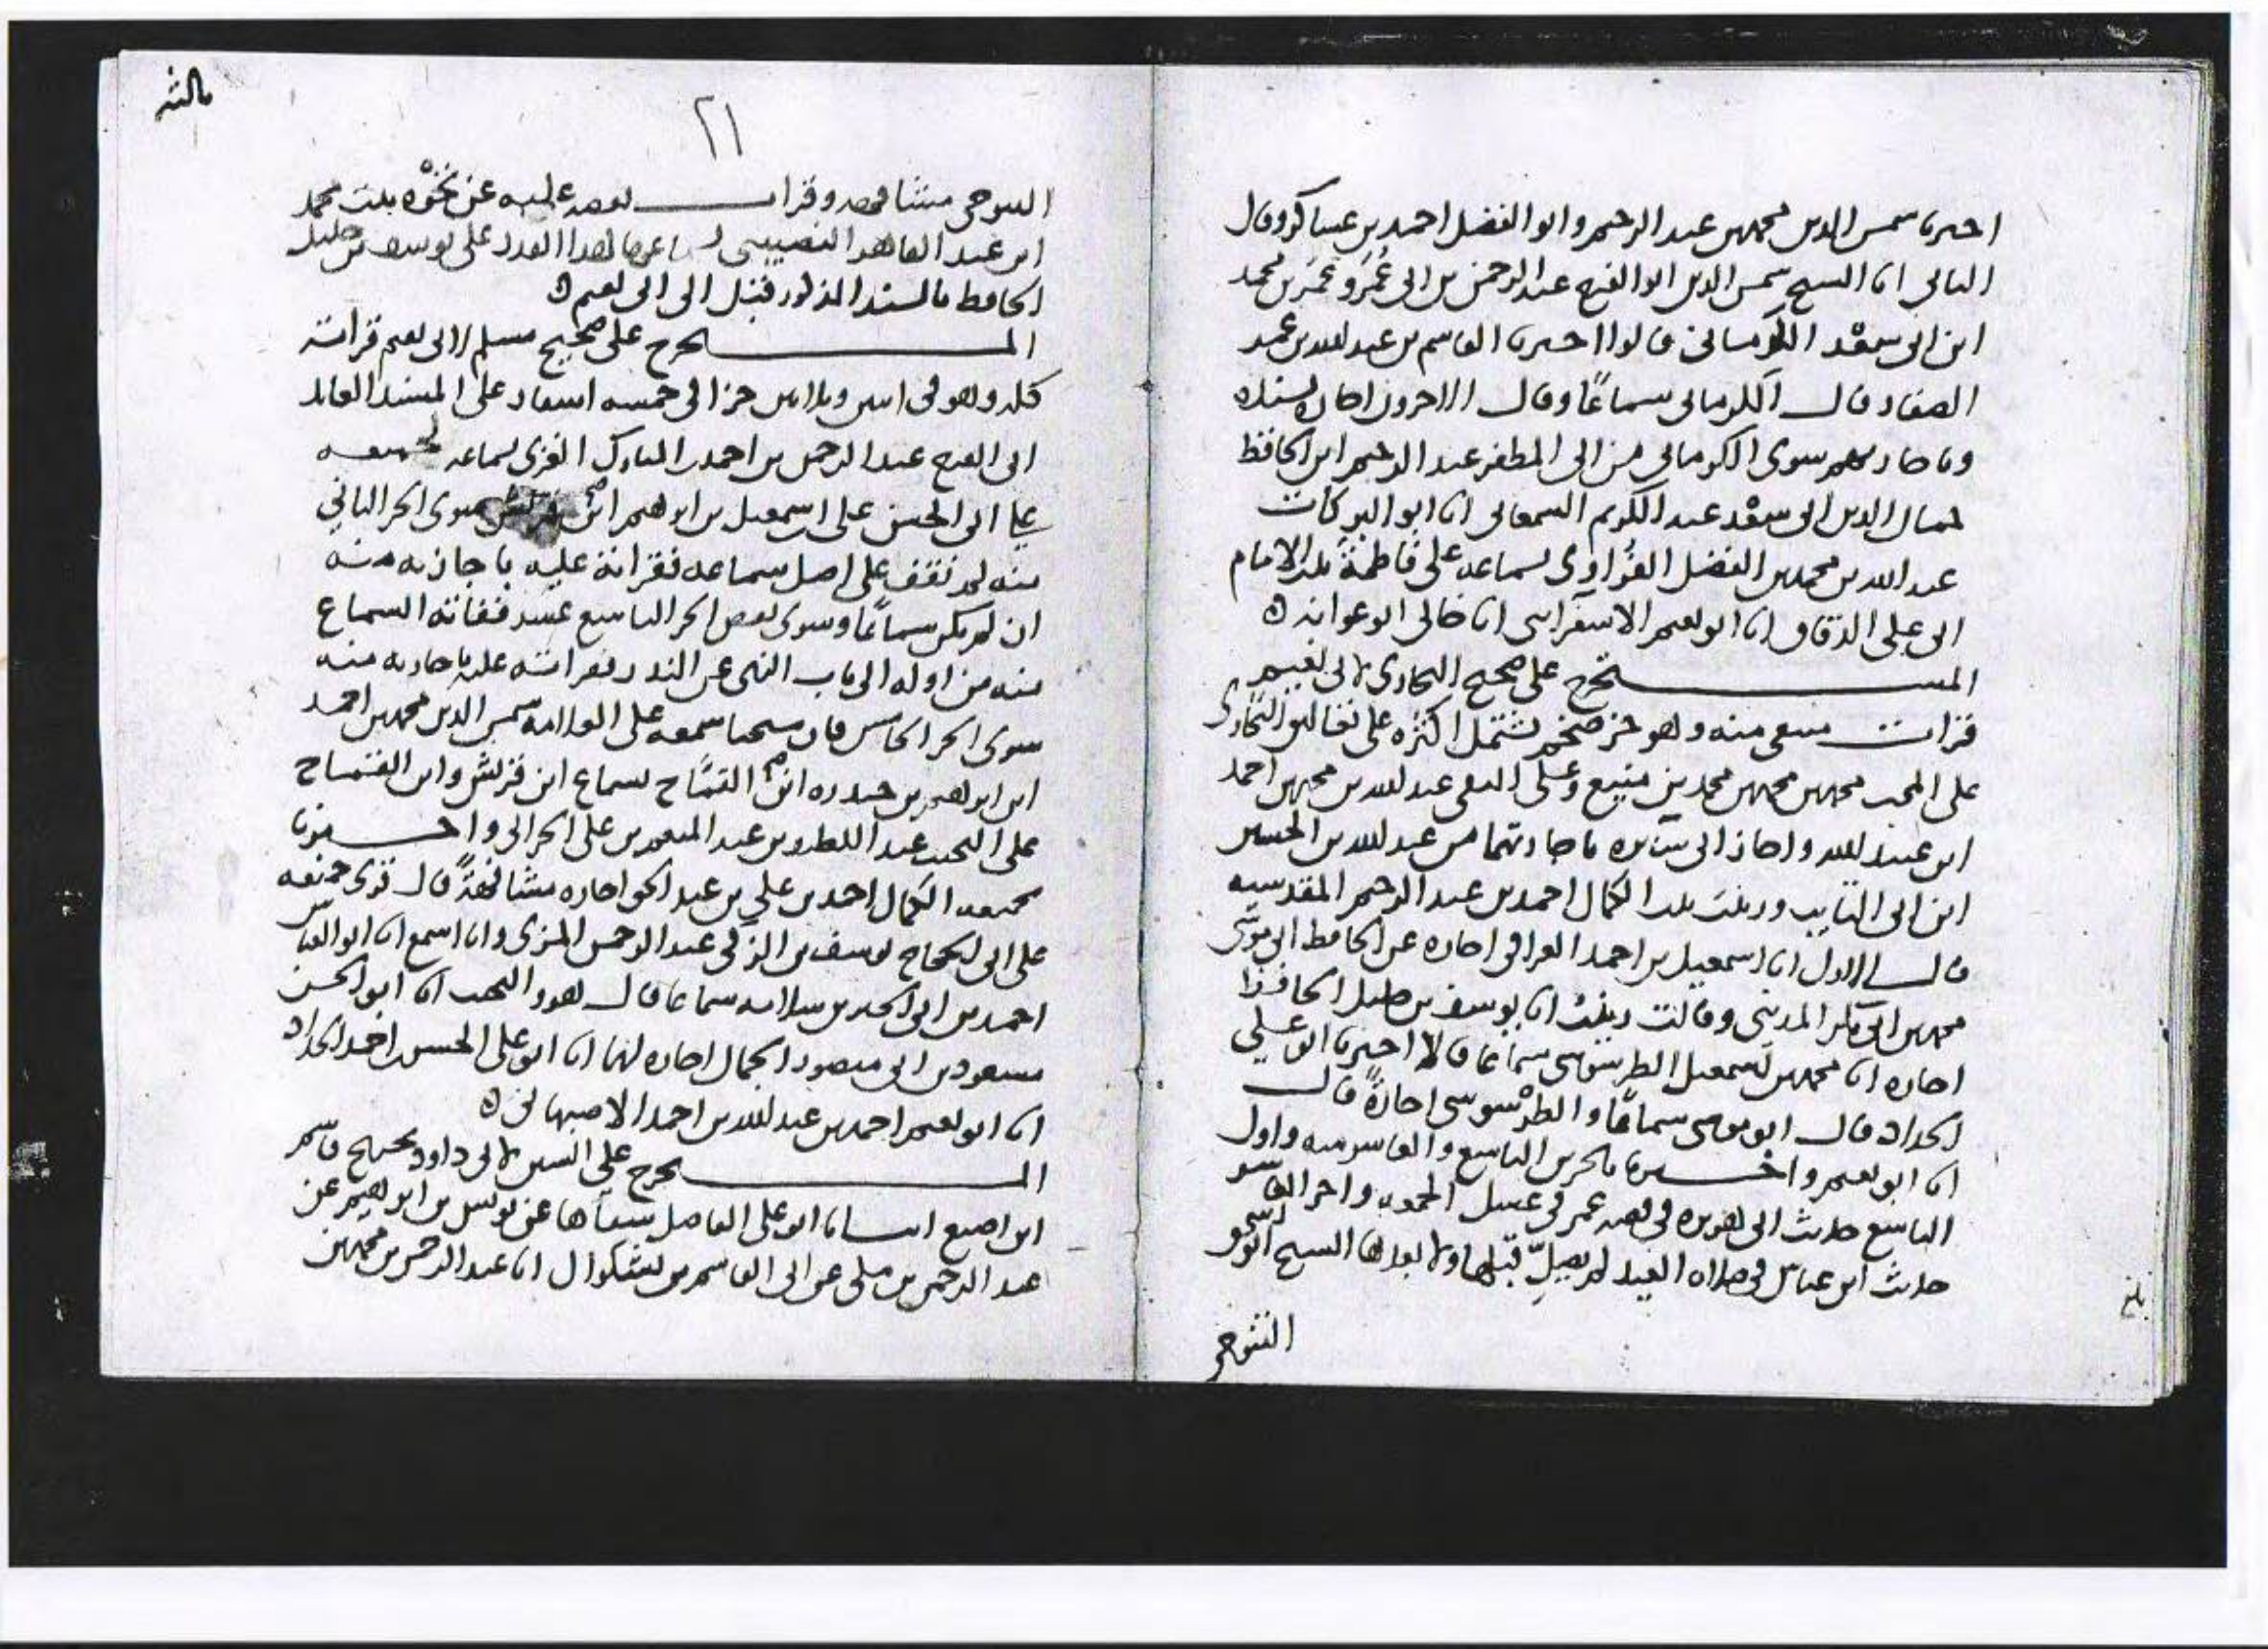 اخبرنا شمس الدين محمد بن عبد الرحيم وابو الفضل احمد بن عساكر وقال
الثاني انا الشيخ شمس الدين ابو الفرج عبد الرحمن بن ابي عُمَر وعُمَر بن محمد
ابن ابي سعْد الكرماني قالوا اخبرنا القاسم بن عبد الله بن عمر
الصفار قال الكرماني سماعًا وقال الاخرون اجازة بسنده
وباجازتهم سوى الكرماني من ابي المظفر عبد الرحيم ابن الحافظ
جمال الدين ابي سعْد عبد الكريم السمعاني انا ابو البركات
عبد الله بن محمد بن الفضل الفُراوي بسماعه على فاطمة بنت الامام
ابي علي الدقاق انا ابو نعيم الاسفرايني انا خالي ابو عوانه ه
المستخرج على صحيح البخاري لابي نعيم
قرات منتقى منه وهو جزء ضخم يشتمل اكثره على تعاليق البخاري
على المحب محمد بن محمد بن محمد بن منيع وعلى التقي عبد الله بن محمد بن احمد
ابن عبيد الله واجاز الي سائره باجازتهما من عبد الله بن الحسين
ابن ابي التايب وزينب بنت الكمال احمد بن عبد الرحيم المقدسيه
قال الاول انا اسمعيل بن احمد العراقي اجازه عن الحافظ ابي موسى
محمد بن ابي بكر المديني وقالت زينب انا يوسف بن خليل الحافظ
اجازه انا محمد بن اسمعيل الطرسوسي سماعا قالا اخبرنا ابو علي
الحداد قال ابو موسى سماعًا والطرسوسي اجازةً قال
انا ابو نعيم واخبرنا بالجزءين التاسع والعاشر منه واول
التاسع حديث ابي هريره في قصه عمر في غسل الجمعه واخر العاشر
حديث ابن عباس في صلاه العيد لم يصلِّ قبلها ولا بعدها الشيخ ابو اسحق
التنوخي
بلغ
ثالثه
٢١
التنوخي مشافهه وقرات بعضه عليه عن نخوه بنت محمد
ابن عبد القاهر النصيبي بهذا القدر على يوسف بن خليل
الحافظ بالسند المذكور قبل الى ابي نعيم ه
المستخرج على صحيح مسلم لابي نعيم قراته
كله وهو في اثنين وثلاثين جزءا في خمسه اسفار على المسند العابد
ابي الفرج عبد الرحمن بن احمد بن المبارك الغزي بسماعه لجميعه
على ابي الحسن علي بن اسمعيل بن ابرهيم ابن قريش سوى الجزء الثاني
منه لم نقف على اصل سماعه فقراته عليه باجازته منه
ان لم يكن سماعًا وسوى بعض الجزء التاسع عشر ففاته السماع
منه من اوله الى باب النهي عن النذر فقراته عليه باجازته منه
سوى الجزء الخامس فان شيخنا سمعه على العلامه شمس الدين محمد بن احمد
ابن ابرهيم بن حيدره ابن القمّاح بسماع ابن قريش وابن القماح
على النجيب عبد اللطيف بن عبد المنعم بن علي الحراني واخبرنا
بجميعه الكمال احمد بن علي بن عبد الحق اجازه مشافهةً قال قرئ جميعه
على ابي الحجاج يوسف بن الزكي عبد الرحمن المزي وانا اسمع انا ابو العباس
احمد بن ابي الخير بن سلامه سماعا قال هو والنجيب انا ابو الحسن
مسعود بن ابي منصور الجمال اجازه لهما انا ابو علي الحسن بن احمد الحداد
انا ابو نعيم احمد بن عبد الله بن احمد الاصبهاني ه
المستخرج على السنن لابي داود تصحيح قاسم
ابن اصبغ انبانا ابو علي الفاضلي شفاها عن يونس بن ابرهيم عن
عبد الرحمن بن مكي عن ابي القاسم بن بشكوال انا عبد الرحمن بن محمد بن